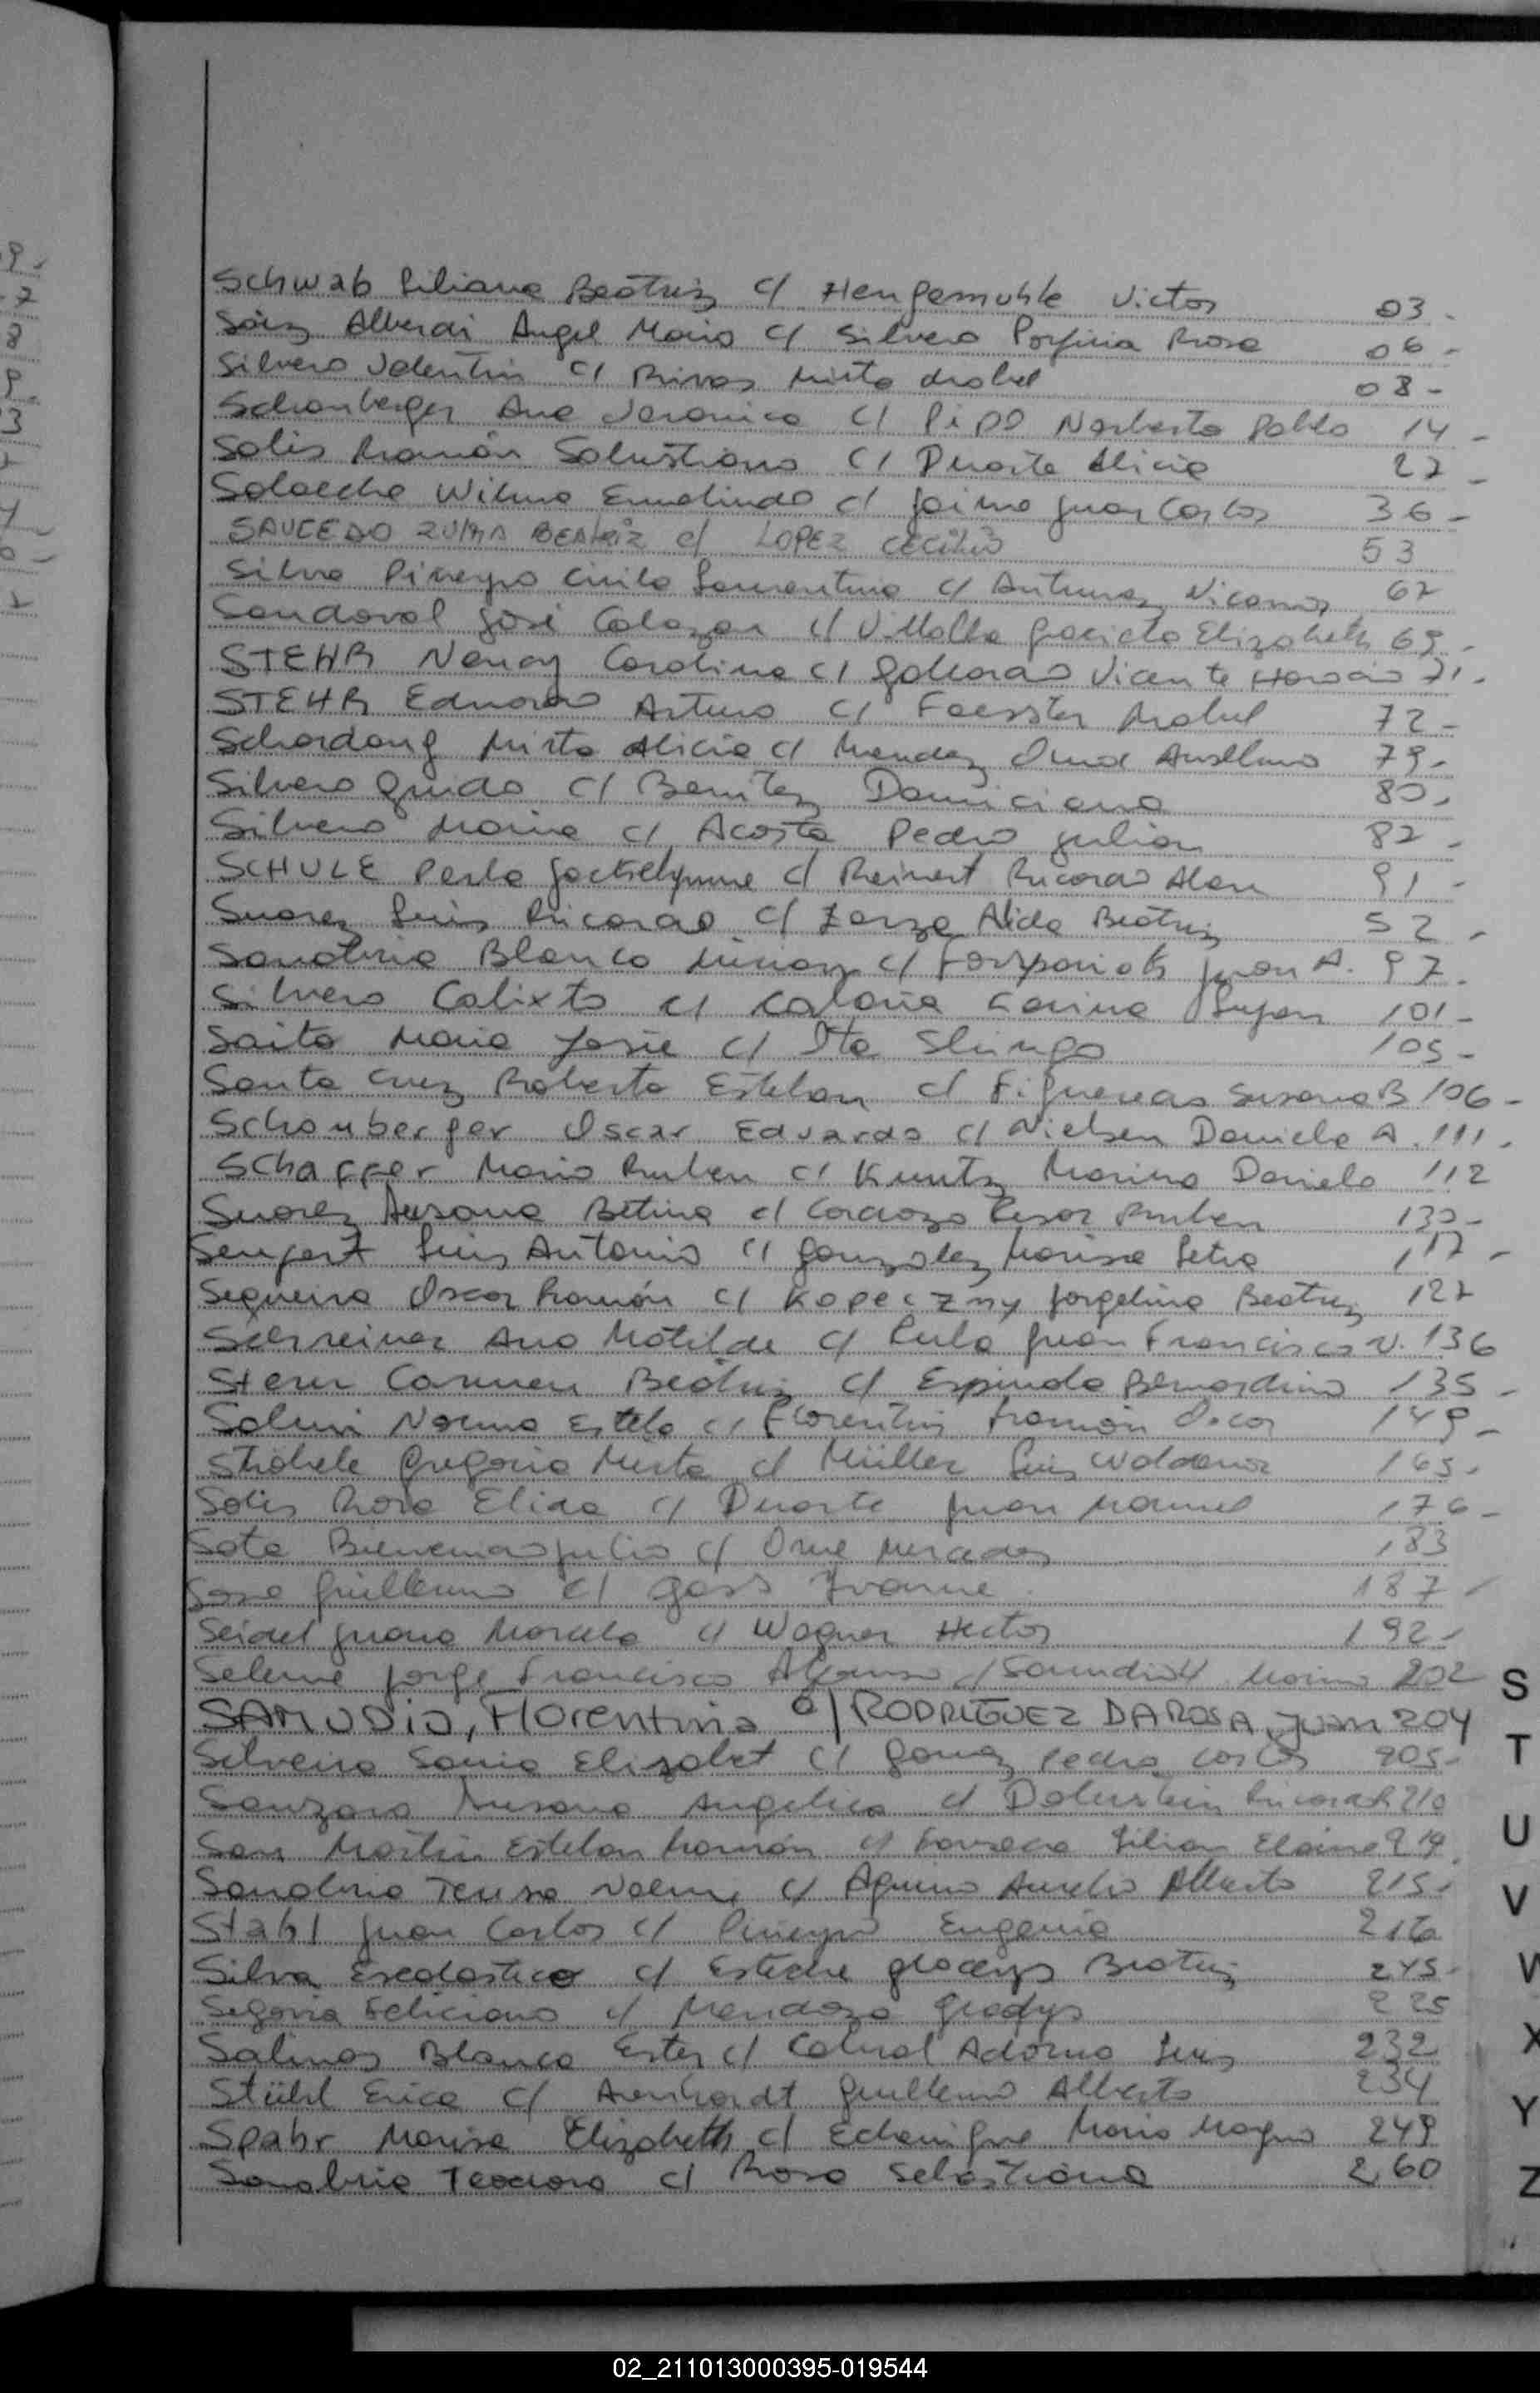 Schwab Liliana Beatriz c/ Hengemuhle Victor 03 -
Sáiz Alberdi Angel Mario c/ Silvero Porfiria Rosa 06 -
Silvero Valentin c/ Rivas Mirta Mabel 08 -
Schonberger Ana Veronica c/ Pipo Norberto Pablo 14 -
Solis Ramón Salustiano c/ Duarte Alicia 27 -
Wilma c/ Jaime Juan Carlos 36 -
SAUCEDO ZULMA BEATRIZ c/ LOPEZ CECILIO 53
Silva Pineyro c/ Antunez Nicanor 67
Sandoval José Calazan c/ Villalba Graciela Elizabeth 69 -
STEHR Nancy Carolina c/ Vicente Horacio 71 -
STEHR Eduardo Arturo c/ Foerster Mabel 72 -
Schardong Mirta Alicia c/ Mendez Omar Anselmo 79 -
Silvero Guido c/ Benitez Domiciana 80 -
Silvero Maria c/ Acosta Pedro Julian 82 -
SCHULE Perla Jackelynne c/ Reinert Ricardo Alan 91 -
Suarez Luis Ricardo c/ Zarza Alida Beatriz 92 -
Sanabria Blanca Miriam c/ Juan A. 97
Silvero Calixto c/ Carina 101 -
Saito Maria c/ Ito Shingo 105 -
Santa Cruz Roberto Esteban c/ Figueredo Susana B 106 -
Schonberger Oscar Eduardo c/ Nielsen Daniela A. 111 -
Schaffer Mario Ruben c/ Kuntz Marina Daniela 112
Suarez Susana Betina c/ Cardozo Cesar Ruben 130 -
Luis Antonio c/ Gonzalez Marisa 117 -
Sequeira Oscar Ramón c/ Kopeczny Jorgelina Beatriz 127
Schreiner Ana Matilde c/ Juan Francisco V. 136
Stern Carmen Beatriz c/ Espindola Bernardino 135 -
Norma Estela c/ Florentin Ramón Oscar 149 -
Strobele Gregoria Mirta c/ Müller Luis Waldemar 165 -
Solis Rosa Elida c/ Duarte Juan Manuel 176 -
Soto Bienvenido Julio c/ Mercedes 183
Guillermo c/ Gass Ivonne 187 -
Seidel Juana Marcela c/ Wagner Hector 192 -
Seleme Jorge Francisco c/ Maria 202
SAMUDIO, Florentina c/ RODRIGUEZ DAROSA, Juan 204
Silveira Sonia Elizabet c/ Pedro Carlos 205 -
Susana Angelica c/ 210
San Martin Esteban Ramón c/ Fonseca Lilian Elaine 214
Sanabria Teresa c/ Aquino Aurelio Alberto 215 -
Stahl Juan Carlos c/ Pineyro Eugenia 216
Silva Escolastico c/ Esteche Gladys Beatriz 245 -
Segovia Feliciano c/ Mendoza Gladys 225
Salinas Blanca Ester c/ Cabral Adorno Luis 232
Stühl Erica c/ Arenhardt Guillermo Alberto 234
Spahr Marisa Elizabeth c/ Echenique Mario Magno 249
Sanabria Teodoro c/ Rosa Sebastiana 260
S
T
U
V
W
X
Y
Z
02_211013000395-019544